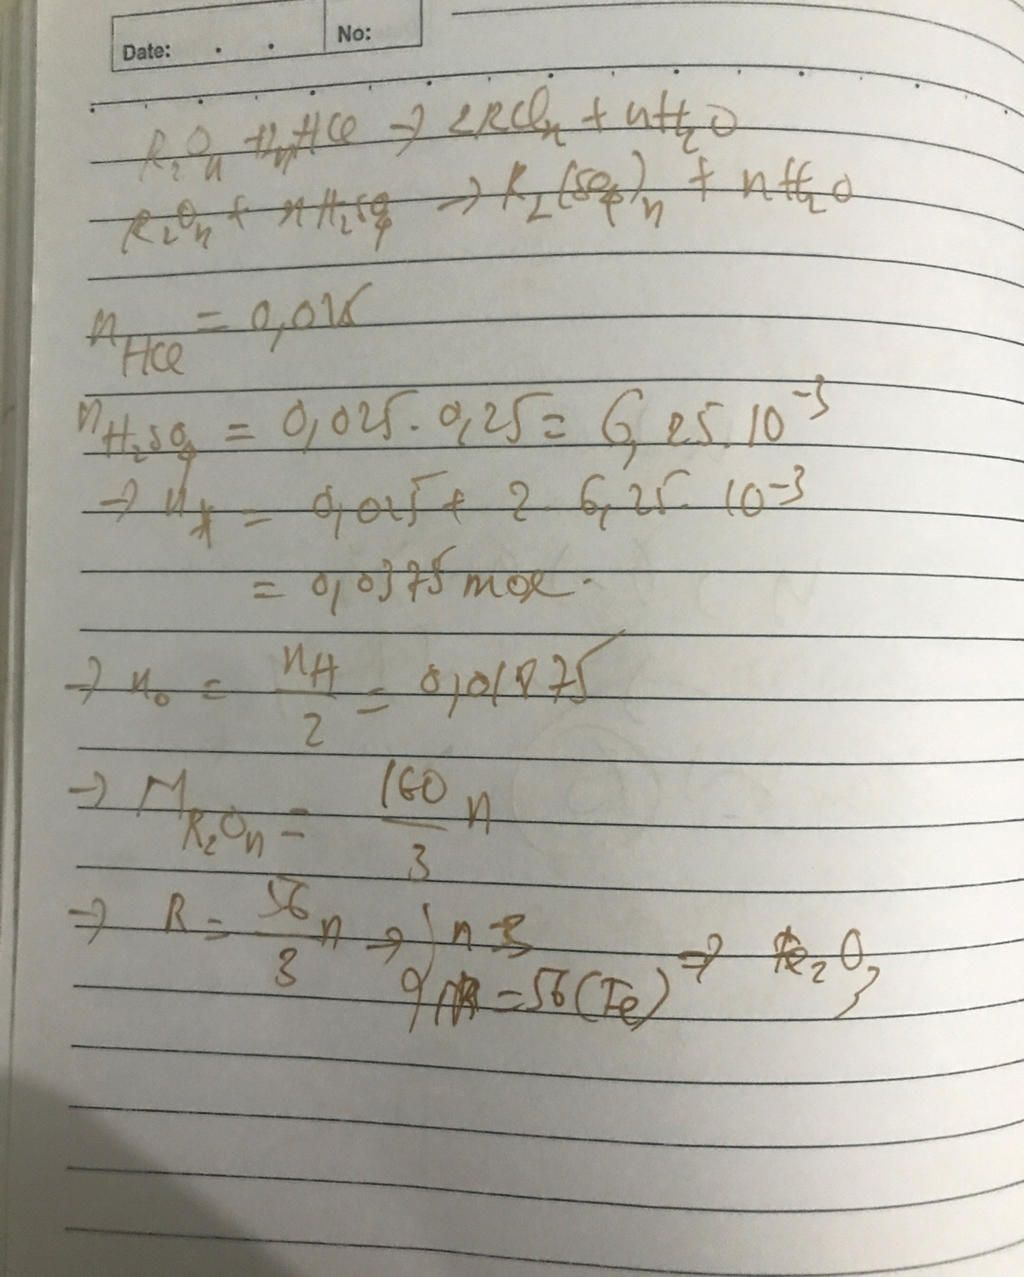 Date: . .
No:
R₂Oₙ + 2nHCl → 2RClₙ + nH₂O
R₂Oₙ + nH₂SO₄ → R₂(SO₄)ₙ + nH₂O
n_HCl = 0,025
n_H₂SO₄ = 0,025 . 0,25 = 6,25.10⁻³
→ n_H = 0,025 + 2. 6,25. 10⁻³
= 0,0375 mol.
→ n_O = n_H / 2 = 0,01875
→ M_R₂Oₙ = 160/3 n
→ R = 56/3 n → { n = 3
R = 56 (Fe) → Fe₂O₃